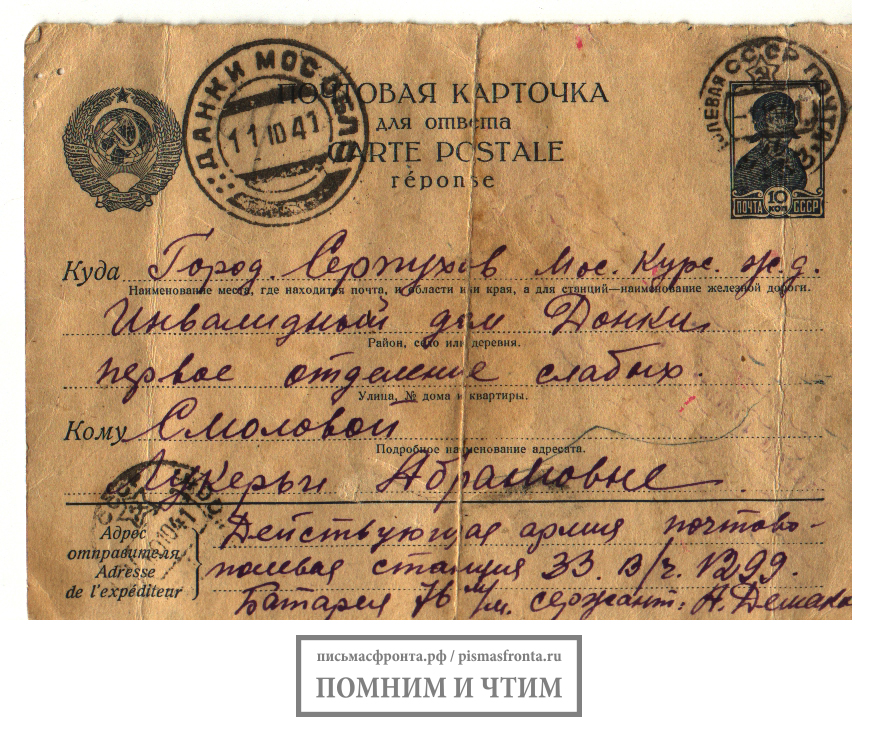 ДАНКИ МОС.ОБЛ.
11 10 41
ПОЧТОВАЯ КАРТОЧКА
для ответа
CARTE POSTALE
réponse
ПОЛЕВАЯ СССР ПОЧТА
ПОЧТА 10 КОП СССР
Куда Город. Серпухов Мос. Курс. ж.д.
Наименование места, где находится почта, и области или края, а для станций—наименование железной дороги.
Инвалидный дом Донки
Район, село или деревня.
первое отделение слабых.
Улица, № дома и квартиры.
Кому Смоловой
Подробное наименование адресата.
Лукерьи Абрамовне
Адрес отправителя
Adresse de l'expéditeur
Действующая армия почтово-
полевая станция 33. в/ч. 1299.
Батарея 76 м/м. сержант: А.
письмасфронта.рф / pismasfronta.ru
ПОМНИМ И ЧТИМ